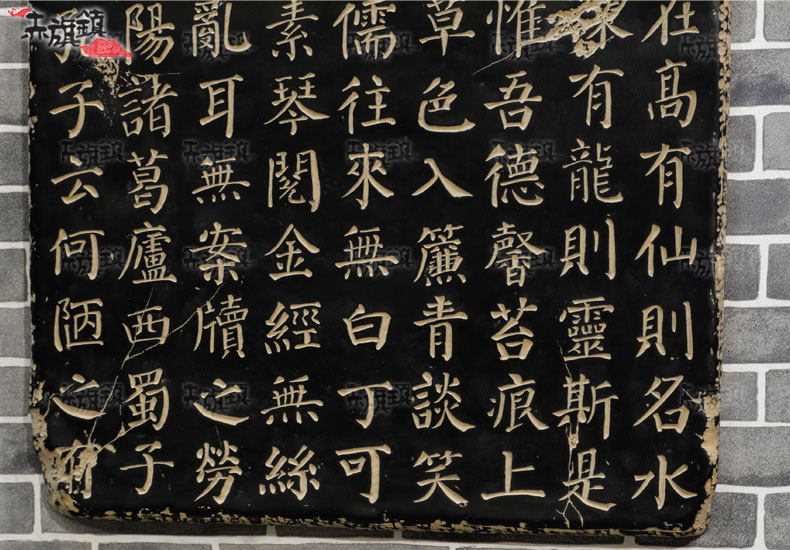 在高有仙則名水
深有龍則靈斯是
惟吾德馨苔痕上
草色入簾青談笑
儒往來無白丁可
素琴閱金經無絲
亂耳無案牘之勞
陽諸葛廬西蜀子
子云何陋之有
旗鎮